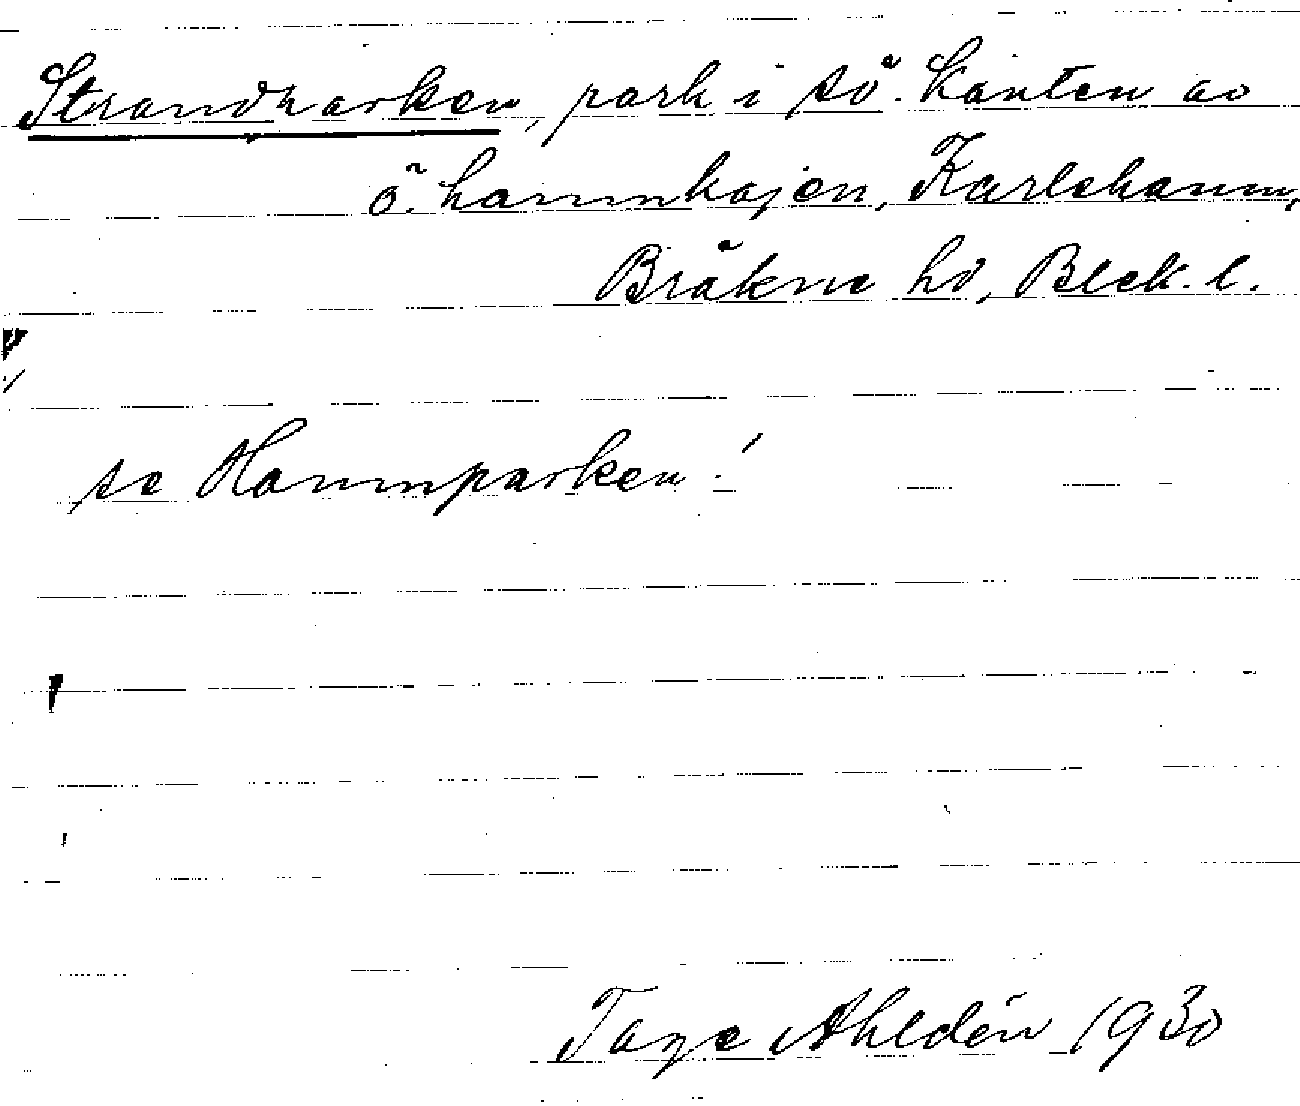 Strandparken, park i sö. kanten av
ö. hamnkajen, Karlshamn,
Bräkne hd, Blek. l.
se Hamnparken!
Tage Ahldén 1930